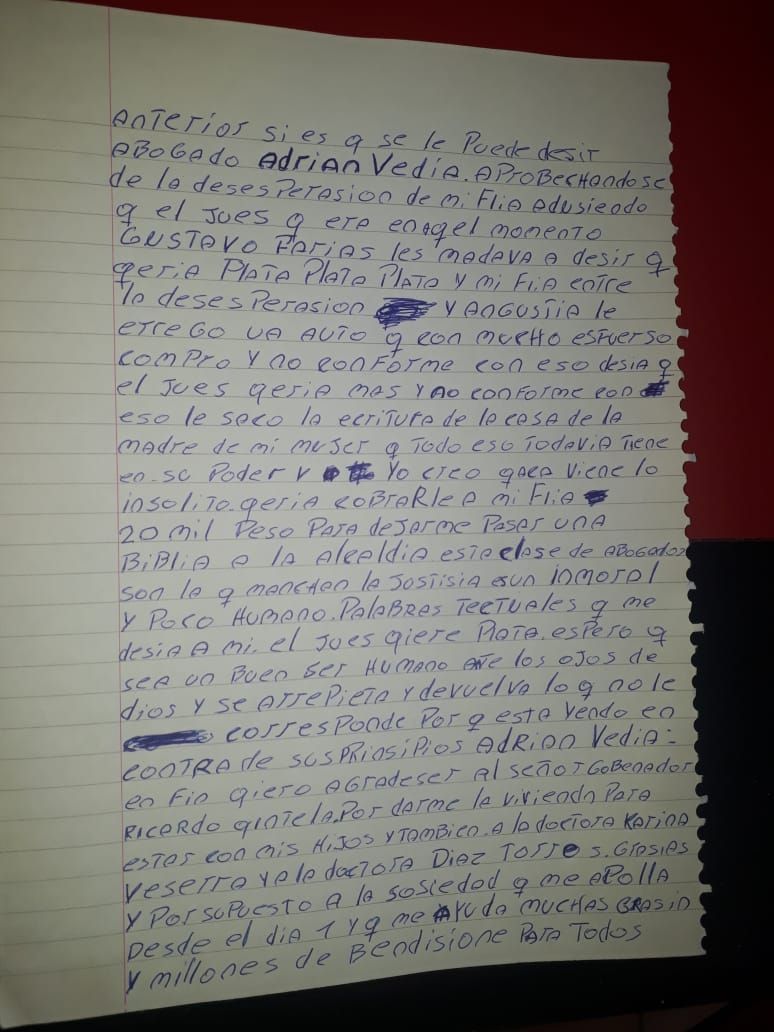 ANTERIOR si es q se le Puede desir
ABOGADO Adrian Vedia. APROBECHANDOSE
de la desesPERASION de mi Flia Adusiendo
q el Jues q era en aqel momento
GUSTAVO FARIAS les madava a desir q
qeria PLATA PLATA PLATA Y mi Flia entre
la desesPerasion Y ANGUSTIA le
etreGO UA AUTO q con mucHo esfuerso
comPro Y no conForme con eso desia q
el Jues qeria mas Y no conForme con
eso le saco la ecritura de la casa de la
madre de mi mujer q Todo eso Todavia tiene
en su Poder Y Yo creo qaca viene lo
insolito. qeria cobrarle a mi Flia
20 mil Peso Para dejarme Pasar una
BiBlia a la Alcaldia esta clase de ABogados
son la q manchan la Justisia es un inmoral
y Poco Humano. Palabras Tectuales q me
desia A mi. el Jues qiere Plata. espero q
sea un Buen ser Humano ante los ojos de
dios Y se ArrePieta Y devuelva lo q no le
corresPonde Por q esta Yendo en
CONTRA de sus PrinsiPios Adrian Vedia-
en Fin qiero AGradeser al señor Gobenador
Ricardo qintela. Por darme la vivienda Para
estar con mis Hijos Y Tambien. a la doctora Karina
Veserra Y a la doctora Diaz Torres. Grasias
Y Por suPuesto a la sosiedad q me aPolla
Desde el dia 1 Y q me AYuda muchas Grasia
Y millones de Bendisione Para Todos